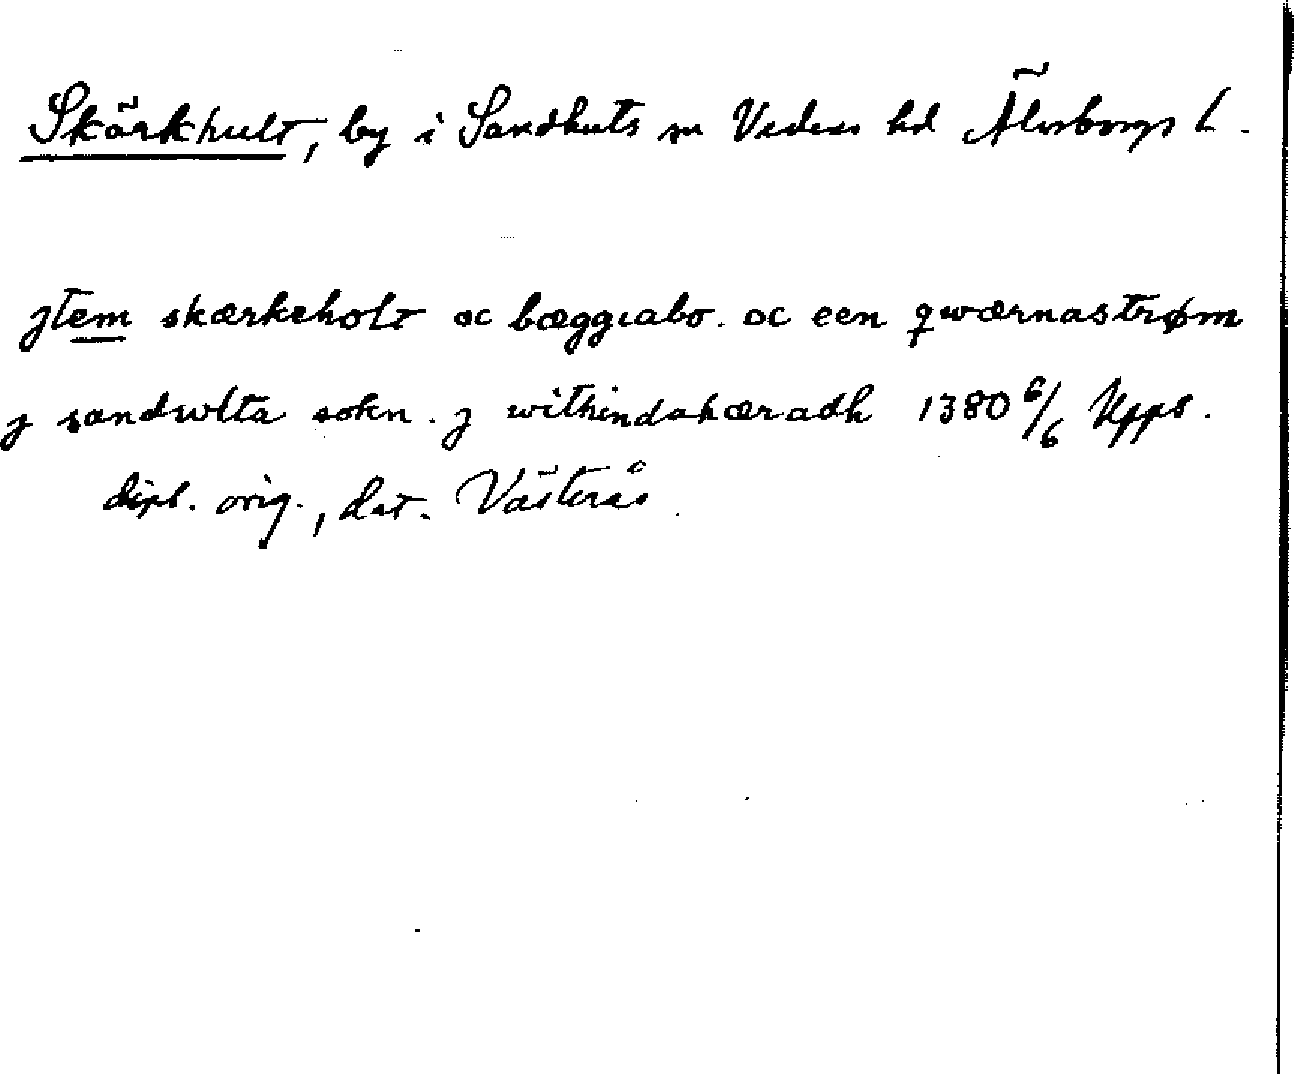 Skärkhult, by i Sandhults sn Vedens hd Älvsborgs l.
jtem skærkeholt oc bæggiabo. oc een qwærnastrøm
j sandwlta sokn. j withindahæradh 1380 6/6 Upps.
dipl. orig., dat. Västerås.